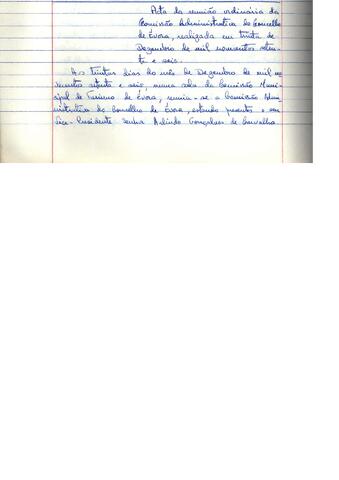 Acta da reunião ordinária da
Comissão Administrativa do Concelho
de Évora, realizada em trinta de
Dezembro de mil novecentos seten-
ta e seis.
Aos trintas dias do mês de Dezembro de mil no
vecentos setenta e seis, numa sala da Comissão Muni-
cipal de Turismo de Évora, reuniu-se a Comissão Admi-
nistrativa do Concelho de Évora, estando presentes o seu
Vice-Presidente senhor Arlindo Gonçalves de Carvalho.